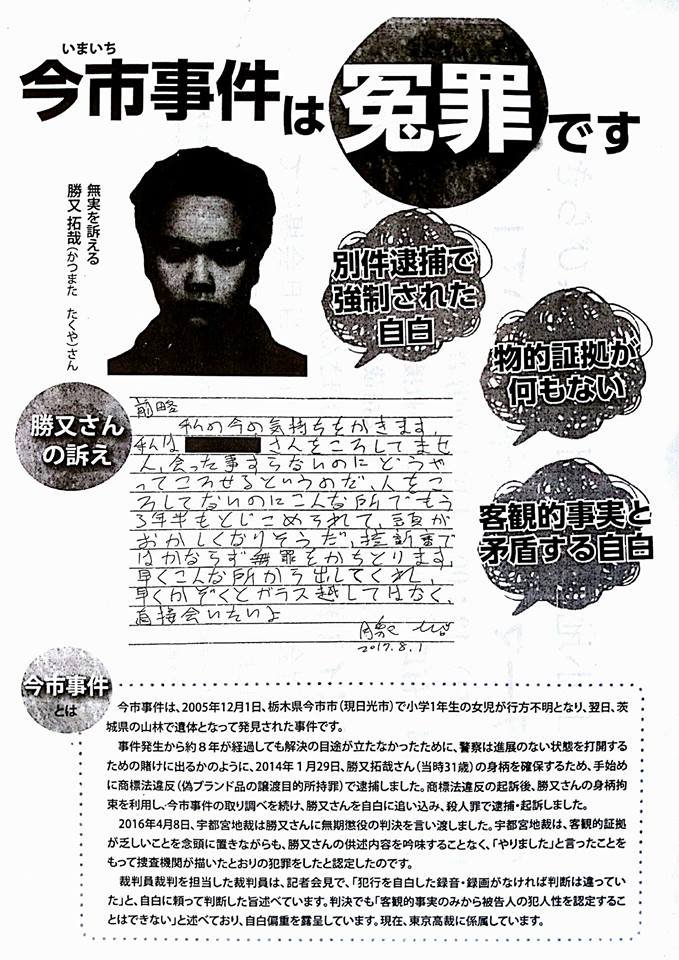 いまいち
今市事件は冤罪です
無実を訴える
勝又 拓哉(かつまた たくや)さん
別件逮捕で
強制された
自白
物的証拠が
何もない
客観的事実と
矛盾する自白
勝又さん
の訴え
前略
私の今の気持ちをかきます。
私は さんをころしてませ
ん、会った事すらないのにどうや
ってころせるというのだ、人をこ
ろしてないのにこんな所でもう
3年半もとじこめられて、頭が
おかしくなりそうだ、控訴審で
はかならず無罪をかちとります。
早くこんな所から出してくれ!
早くかぞくとガラス越しではなく、
直接会いたいよ
2017.8.1
今市事件
とは
今市事件は、2005年12月1日、栃木県今市市(現日光市)で小学1年生の女児が行方不明となり、翌日、茨
城県の山林で遺体となって発見された事件です。
事件発生から約8年が経過しても解決の目途が立たなかったために、警察は進展のない状態を打開する
ための賭けに出るかのように、2014年1月29日、勝又拓哉さん(当時31歳)の身柄を確保するため、手始め
に商標法違反(偽ブランド品の譲渡目的所持罪)で逮捕しました。商標法違反の起訴後、勝又さんの身柄拘
束を利用し、今市事件の取り調べを続け、勝又さんを自白に追い込み、殺人罪で逮捕・起訴しました。
2016年4月8日、宇都宮地裁は勝又さんに無期懲役の判決を言い渡しました。宇都宮地裁は、客観的証拠
が乏しいことを念頭に置きながらも、勝又さんの供述内容を吟味することなく、「やりました」と言ったことを
もって捜査機関が描いたとおりの犯罪をしたと認定したのです。
裁判員裁判を担当した裁判員は、記者会見で、「犯行を自白した録音・録画がなければ判断は違ってい
た」と、自白に頼って判断した旨述べています。判決でも「客観的事実のみから被告人の犯人性を認定するこ
とはできない」と述べており、自白偏重を露呈しています。現在、東京高裁に係属しています。